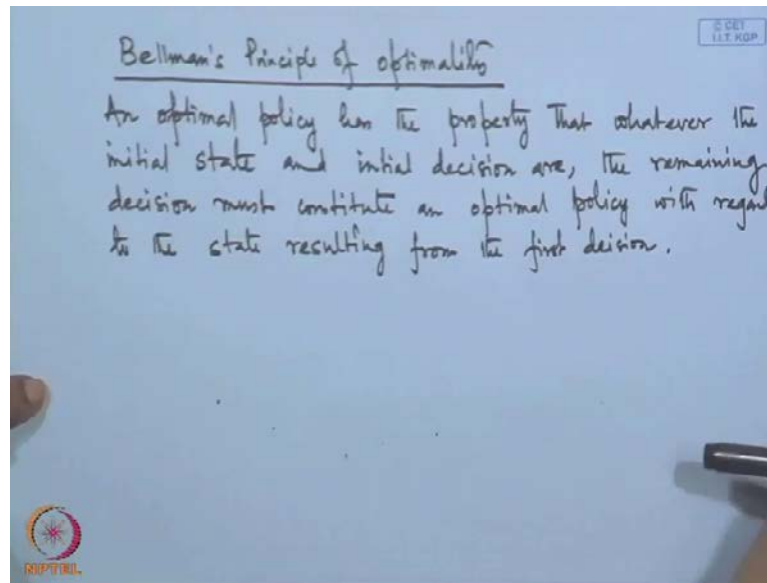 © CET
I.I.T. KGP
Bellman's Principle of optimality
An optimal policy has the property that whatever the
initial state and intial decision are, the remaining
decision must contitute an optimal policy with regard
to the state resulting from the first deision.
NPTEL